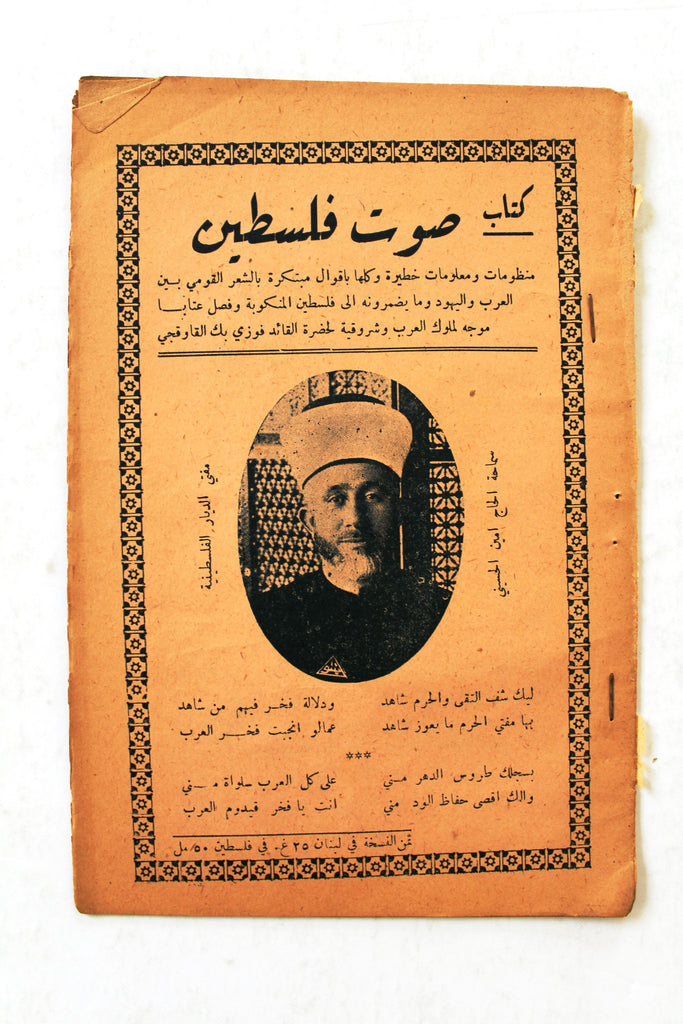 كتاب صوت فلسطين
منظومات ومعلومات خطيرة وكلها باقوال مبتكرة بالشعر القومي بين
العرب واليهود وما يضمرونه الى فلسطين المنكوبة وفصل عتابا
موجه لملوك العرب وشروقية لحضرة القائد فوزي بك القاوقجي
سماحة الحاج امين الحسيني
مفتي الديار الفلسطينية
ليك شف التقى والحرم شاهد ودلالة فخر فيهم من شاهد
بها مفتي الحرم ما يعوز شاهد عمالو انجبت فخر العرب
***
بسجلك طروس الدهر مني على كل العرب سلواة مني
والك اقصى حفاظ الود مني انت يا فخر قيدوم العرب
ثمن النسخة في لبنان ٢٥ غ. في فلسطين ٥٠ مل